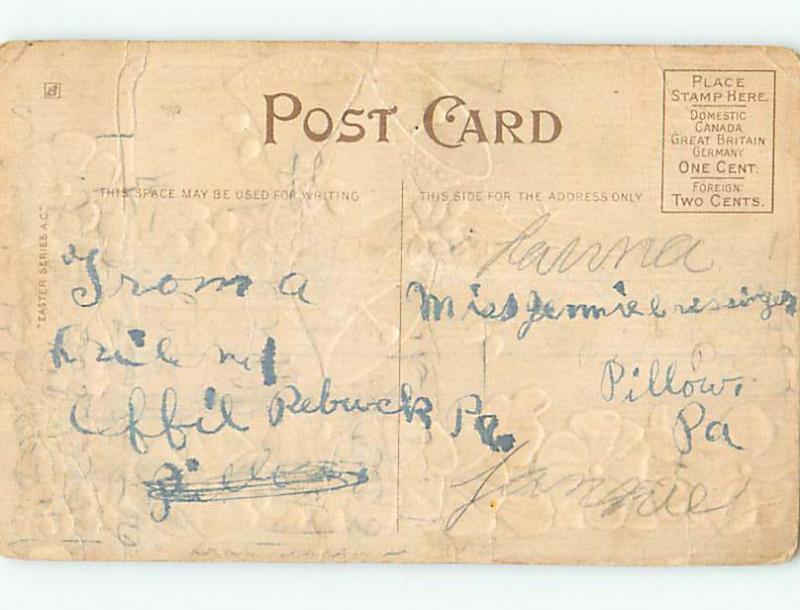 POST CARD
PLACE
STAMP HERE.
DOMESTIC
CANADA
GREAT BRITAIN
GERMANY
ONE CENT.
FOREIGN:
TWO CENTS.
THIS SPACE MAY BE USED FOR WRITING
THIS SIDE FOR THE ADDRESS ONLY
"EASTER SERIES A.C."
From a
Effil Rebuck Pa
Miss Jennie
Pillow
Pa